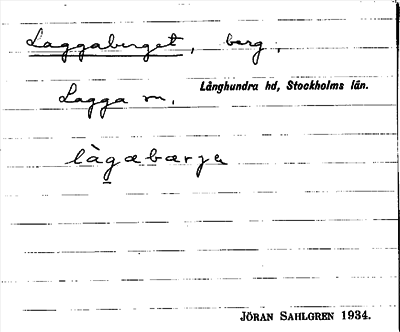 Laggaberget, berg,
Långhundra hd, Stockholms län.
Lagga sn,
làgabærjɐ
JÖRAN SAHLGREN 1934.